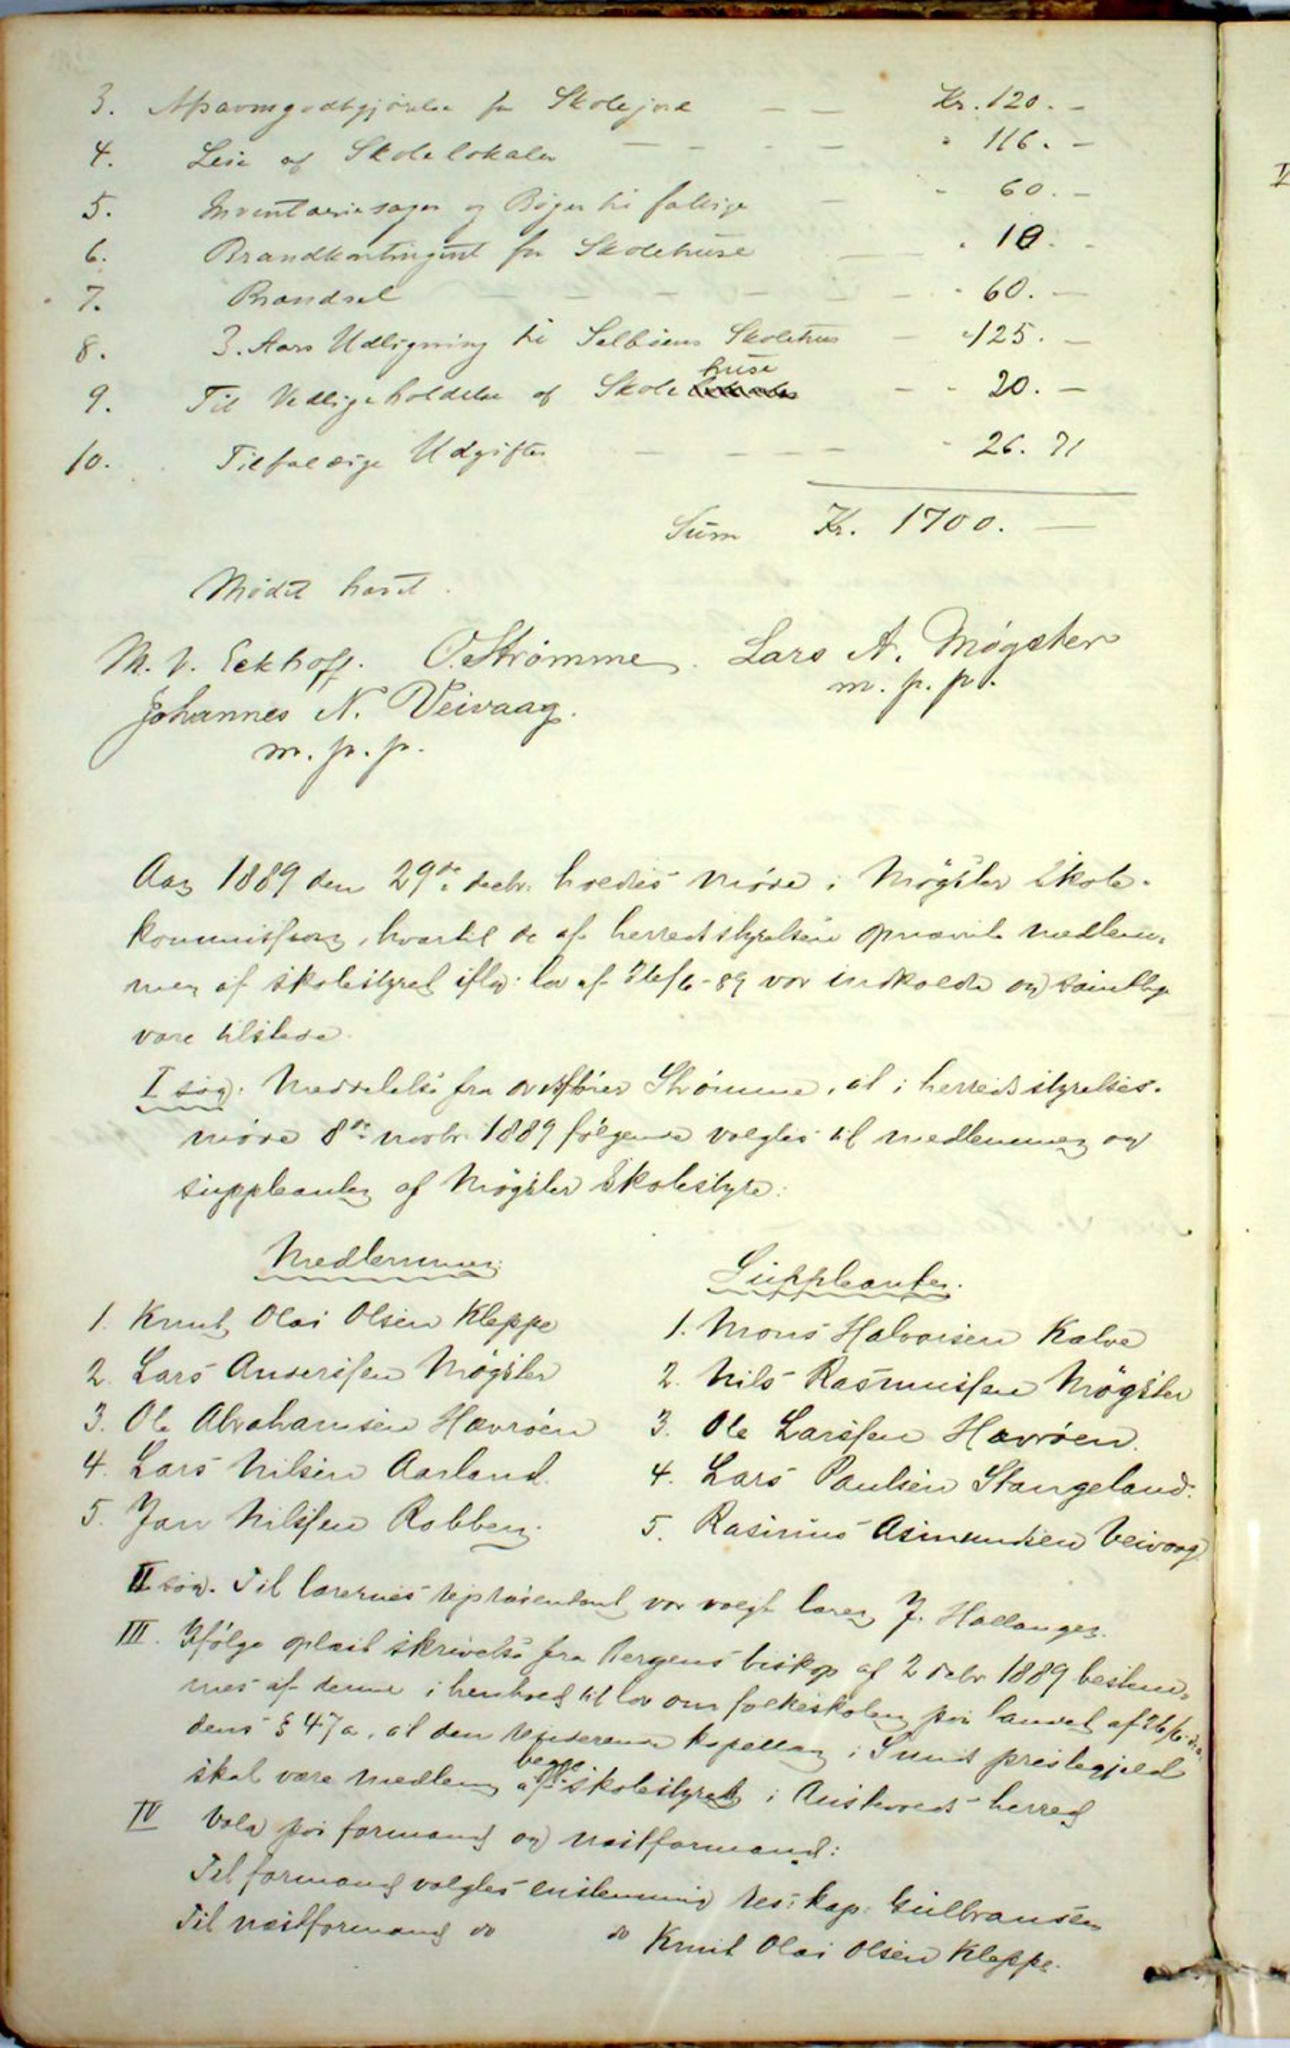 3. Afsavnsgodtgjörelse for Skolejord — — Kr. 120. —
4. Leie af Skolelokaler — — — — " 116. —
5. Inventariesager og Bøger til fattige — " 60. —
6. Brandkontingent for Skolehuse — — " 10. -
7. Brændsel — — — — — — " 60. —
8. 3. Aars Udligning til Selbiens Skolehus — " 125. —
huse
9. Til Vedligeholdelse af Skole — - 20. —
10. Tilfældige Udgifter — — — " 26. 71
Sum Kr. 1700. —
Mødet hævet.
M. V. Eckhoff. O. Strömme. Lars A. Møgster
m. p. p.
Johannes N. Veivaag.
m. p. p.
Aar 1889 den 29de decbr. holdtes møde i Møgster skole-
kommission, hvortil de af herredsstyrelsen opnævnte medlem-
mer af skolestyret iflg. lov af 26/6-89 var indkaldte og samtlige
vare tilstede.
I sag. Meddelelse fra ordfører Strømme, at i herredsstyrelses-
møde 8de novbr. 1889 følgende valgtes til medlemmer og
suppleanter af Møgster skolestyre:
Medlemmer: Suppleanter.
1. Knut Olai Olsen Kleppe 1. Mons Halvorsen Kalve
2. Lars Anderssen Møgster 2. Nils Rasmussen Møgster
3. Ole Abrahamsen Hævrøen 3. Ole Larssen Hævrøen.
4. Lars Nilsen Aarland. 4. Lars Paulsen Stangeland.
5. Jan Nilssen Robben. 5. Rasmus Asmundsen Veivaag
II sag. Til lærernes repræsentant var valgt lærer J. Hallanger.
III. Ifølge oplæst skrivelse fra Bergens biskop af 2 decbr 1889 bestem-
mes af denne i henhold til lov om folkeskolen paa landet af 26/6 d.a.
dens § 47a, at den residerende kapellan i Sunds prestegjeld
begge
skal være medlem af skolestyret i Austevolds herred
IV Valg paa formand og næstformand:
Til formand valgtes enstemmig res. kap. Gulbransen
Til næstformand do do Knut Olai Olsen Kleppe.
V